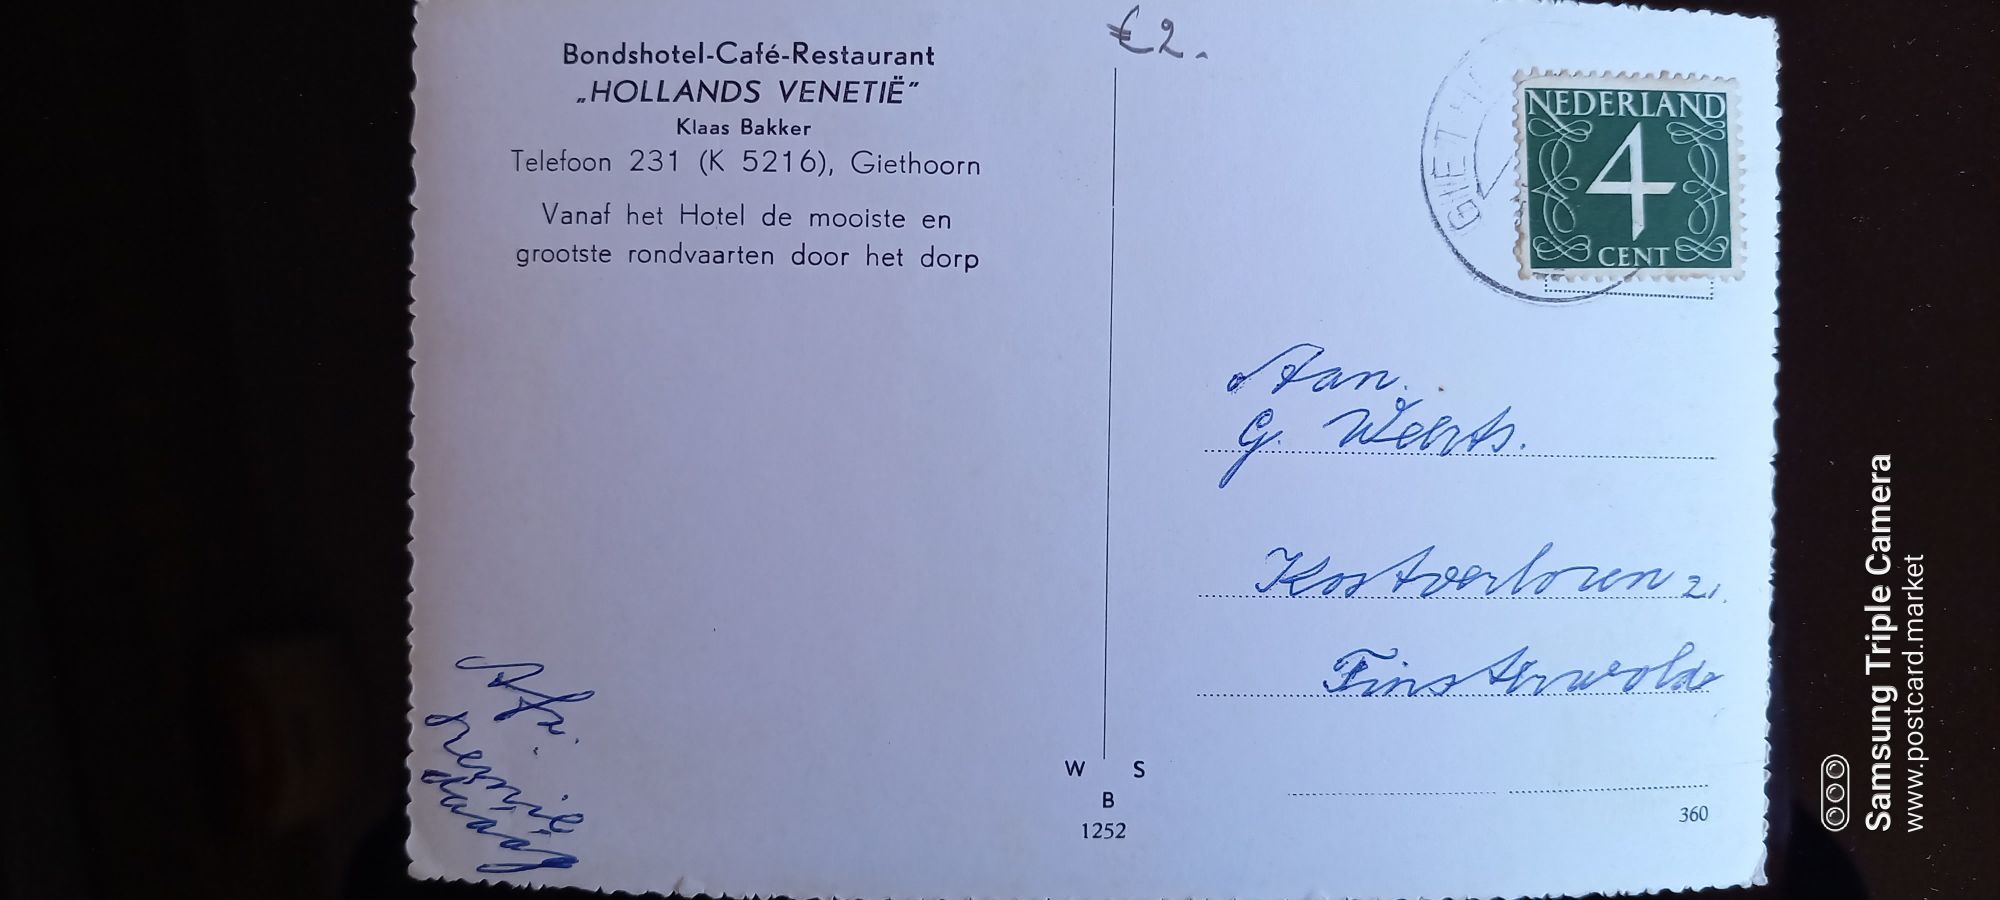 Bondshotel-Café-Restaurant
„HOLLANDS VENETIË"
Klaas Bakker
Telefoon 231 (K 5216), Giethoorn
Vanaf het Hotel de mooiste en
grootste rondvaarten door het dorp
€2.
NEDERLAND
4
CENT
Aan.
G. Weerts.
Kostverloren 21.
Finsterwolde
Afz.
W S
B
1252
360
Samsung Triple Camera
www.postcard.market